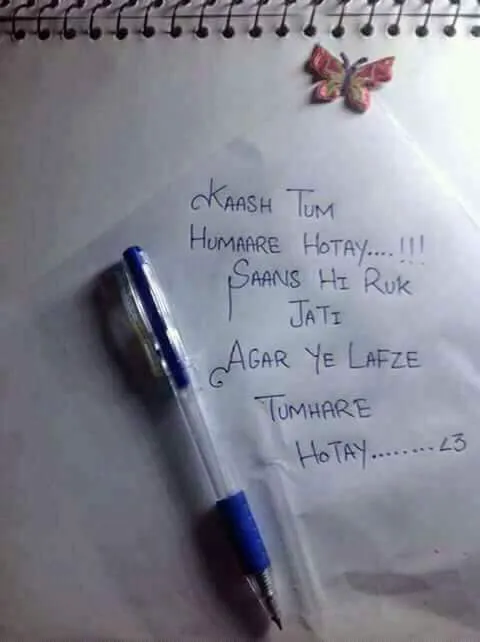 KAASH TUM
HUMAARE HOTAY....!!!
SAANS HI RUK
JATI
AGAR YE LAFZE
TUMHARE
HOTAY........<3